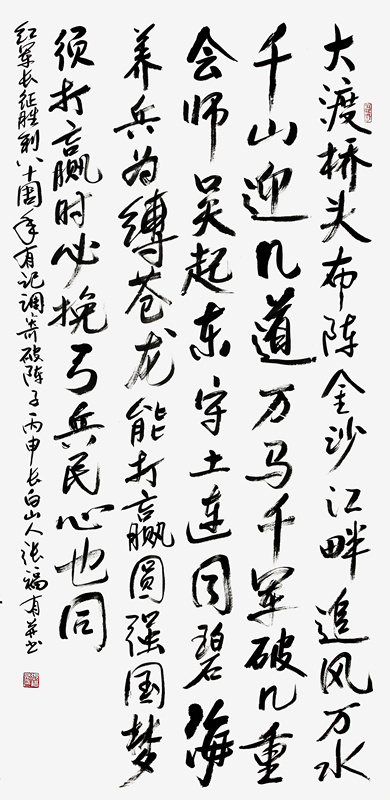 大渡桥头布阵金沙江畔追风万水
千山迎几道万马千军破几重
会师吴起东守土连同碧海
养兵为缚苍龙能打赢圆强国梦
须打赢时必挽弓兵民心也同
红军长征胜利八十周年有记调寄破阵子丙申长白山人张福有并书